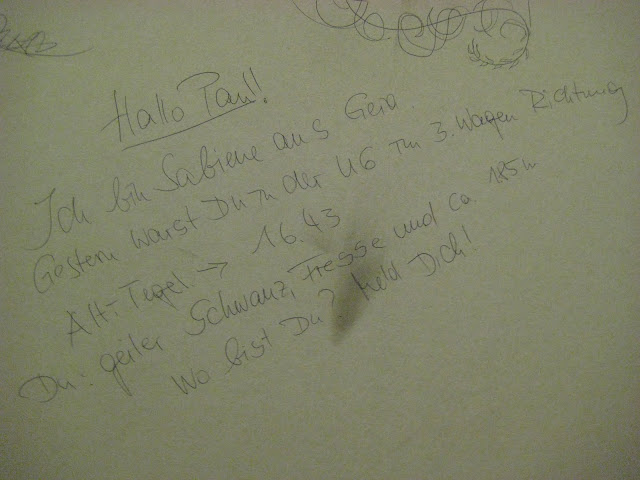 Hallo Paul!
Ich bin Sabiene aus Gera.
Gestern warst Du in der U6 im 3. Wagen Richtung
Alt-Tegel. → 16.43
Du: geiler Schwanz, Fresse und ca. 185m
Wo bist Du? Meld Dich!